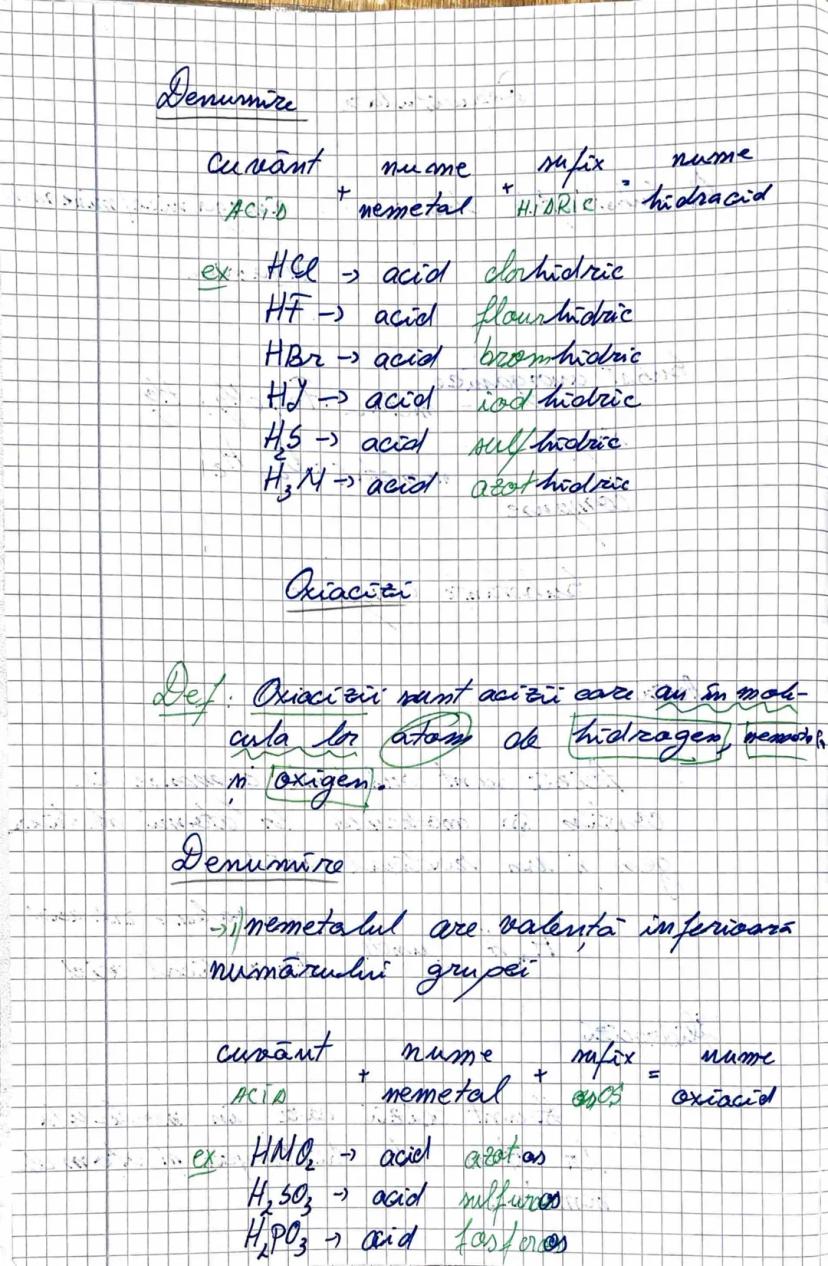 Denumire
cuvânt + nume + sufix = nume
ACiD nemetal HiDRiC hidracid
ex: HCl → acid clorhidric
HF → acid flourhidric
HBr → acid bromhidric
HJ → acid iodhidric
H₂S → acid sulfhidric
H₃N → acid azothidric
Oxiacizi
Def: Oxiacizii sunt acizii care au în mole-
cula lor atom de hidrogen, nemetal,
și oxigen.
Denumire
→1) nemetalul are valență inferioară
numărului grupei
cuvânt + nume + sufix = nume
ACiD nemetal OS oxiacid
ex: HNO₂ → acid azotos
H₂SO₃ → acid sulfuros
H₂PO₃ → acid fosforos